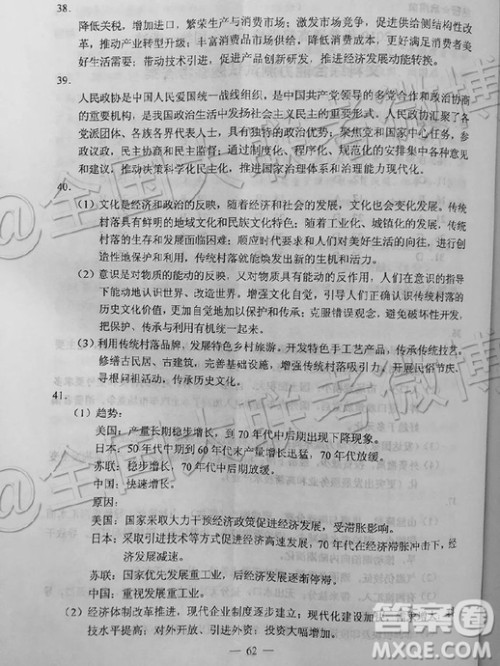 38.
降低关税，增加进口，繁荣生产与消费市场；激发市场竞争，促进供给侧结构性改
革，推动产业转型升级；丰富消费品市场供给，带动消费升级，更好满足消费者美
好生活需要；带动技术引进，促进产品创新研发，推进经济发展动能转换。
39.
人民政协是中国人民爱国统一战线组织，是中国共产党领导的多党合作和政治协商
的重要机构，是我国政治生活中发扬社会主义民主的重要形式。人民政协汇聚了各
党派团体、各族各界代表人士，具有独特的政治优势；聚焦党和国家中心任务，参
政议政，民主协商和民主监督；通过制度化、程序化、规范化的安排集中各种意见
和建议，推动决策科学化民主化，推进国家治理体系和治理能力现代化。
40.
（1）文化是经济和政治的反映，随着经济和社会的发展，文化也会变化发展。传统
村落具有鲜明的地域文化和民族文化特色；随着工业化、城镇化的发展，传统
村落的生存和发展面临困难；顺应时代要求和人们对美好生活的向往，进行创
造性地保护和利用，传统村落就能焕发出新的生机和活力。
（2）意识是对物质的能动的反映，又对物质具有能动的反作用，人们在意识的指导
下能动地认识世界、改造世界，增强文化自觉，引导人们正确认识传统村落的
历史文化价值，更加自觉地加以保护和传承；克服错误观念，避免破坏性开发，
把保护、传承与利用有机统一起来。
（3）利用传统村落品牌，发展特色乡村旅游，开发特色手工艺产品，传承传统技艺，
修缮古民居、古建筑，完善基础设施，增强传统村落吸引力。开展民俗节庆、
寻根问祖活动，传承历史文化。
41.
（1）趋势：
美国：产量长期稳步增长，到 70 年代中后期出现下降现象。
日本：50 年代中期到 60 年代末产量增长迅猛，70 年代放缓。
苏联：稳步增长，70 年代中后期放缓。
中国：快速增长。
原因：
美国：国家采取大力干预经济政策促进经济发展，受滞胀影响。
日本：采取引进技术等方式促进经济高速发展，70 年代在经济滞胀冲击下，经
济发展减速。
苏联：国家优先发展重工业，后经济发展逐渐停滞。
中国：重视发展重工业。
（2）经济体制改革推进，现代企业制度逐步建立；现代化建设加
技术水平提高；对外开放、引进外资；投资大幅增加。
— 62 —
@全国大联考微博
@全国大联考微博
答案圈